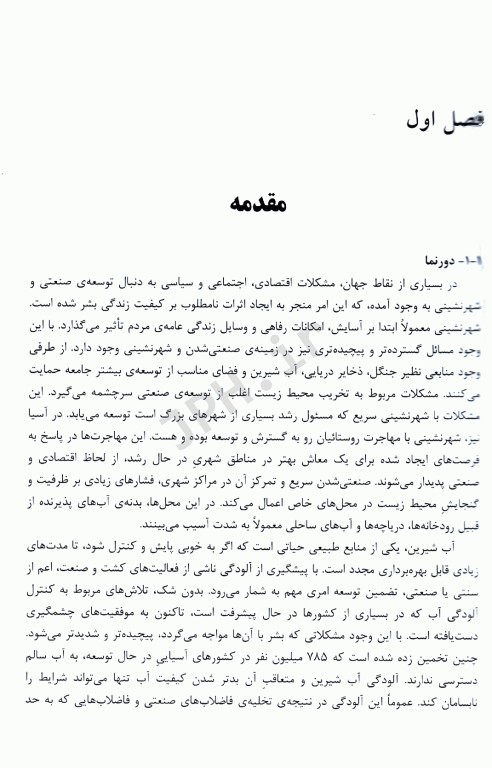 فصل اول
مقدمه
۱-۱- دورنما
در بسیاری از نقاط جهان، مشکلات اقتصادی، اجتماعی و سیاسی به دنبال توسعه‌ی صنعتی و
شهرنشینی به وجود آمده، که این امر منجر به ایجاد اثرات نامطلوب بر کیفیت زندگی بشر شده است.
شهرنشینی معمولاً ابتدا بر آسایش، امکانات رفاهی و وسایل زندگی عامه‌ی مردم تأثیر می‌گذارد. با این
وجود مسائل گسترده‌تر و پیچیده‌تری نیز در زمینه‌ی صنعتی‌شدن و شهرنشینی وجود دارد. از طرفی
وجود منابعی نظیر جنگل، ذخایر دریایی، آب شیرین و فضای مناسب از توسعه‌ی بیشتر جامعه حمایت
می‌کنند. مشکلات مربوط به تخریب محیط زیست اغلب از توسعه‌ی صنعتی سرچشمه می‌گیرد. این
مشکلات با شهرنشینی سریع که مسئول رشد بسیاری از شهرهای بزرگ است توسعه می‌یابد. در آسیا
نیز، شهرنشینی با مهاجرت روستائیان رو به گسترش و توسعه بوده و هست. این مهاجرت‌ها در پاسخ به
فرصت‌های ایجاد شده برای یک معاش بهتر در مناطق شهریِ در حال رشد، از لحاظ اقتصادی و
صنعتی پدیدار می‌شوند. صنعتی‌شدن سریع و تمرکز آن در مراکز شهری، فشارهای زیادی بر ظرفیت و
گنجایش محیط زیست در محل‌های خاص اعمال می‌کند. در این محل‌ها، بدنه‌ی آب‌های پذیرنده از
قبیل رودخانه‌ها، دریاچه‌ها و آب‌های ساحلی معمولاً به شدت آسیب می‌بینند.
آب شیرین، یکی از منابع طبیعی حیاتی است که اگر به خوبی پایش و کنترل شود، تا مدت‌های
زیادی قابل بهره‌برداری مجدد است. با پیشگیری از آلودگی ناشی از فعالیت‌های کشت و صنعت، اعم از
سنتی یا صنعتی، تضمین توسعه امری مهم به شمار می‌رود. بدون شک، تلاش‌های مربوط به کنترل
آلودگی آب که در بسیاری از کشورها در حال پیشرفت است، تاکنون به موفقیت‌های چشمگیری
دست‌یافته است. با این وجود مشکلاتی که بشر با آن‌ها مواجه می‌گردد، پیچیده‌تر و شدیدتر می‌شود.
چنین تخمین زده شده است که ۷۸۵ میلیون نفر در کشورهای آسیاییِ در حال توسعه، به آب سالم
دسترسی ندارند. آلودگی آب شیرین و متعاقبِ آن بدتر شدن کیفیت آب تنها می‌تواند شرایط را
نابسامان کند. عموماً این آلودگی در نتیجه‌ی تخلیه‌ی فاضلاب‌های صنعتی و فاضلاب‌هایی که به حد